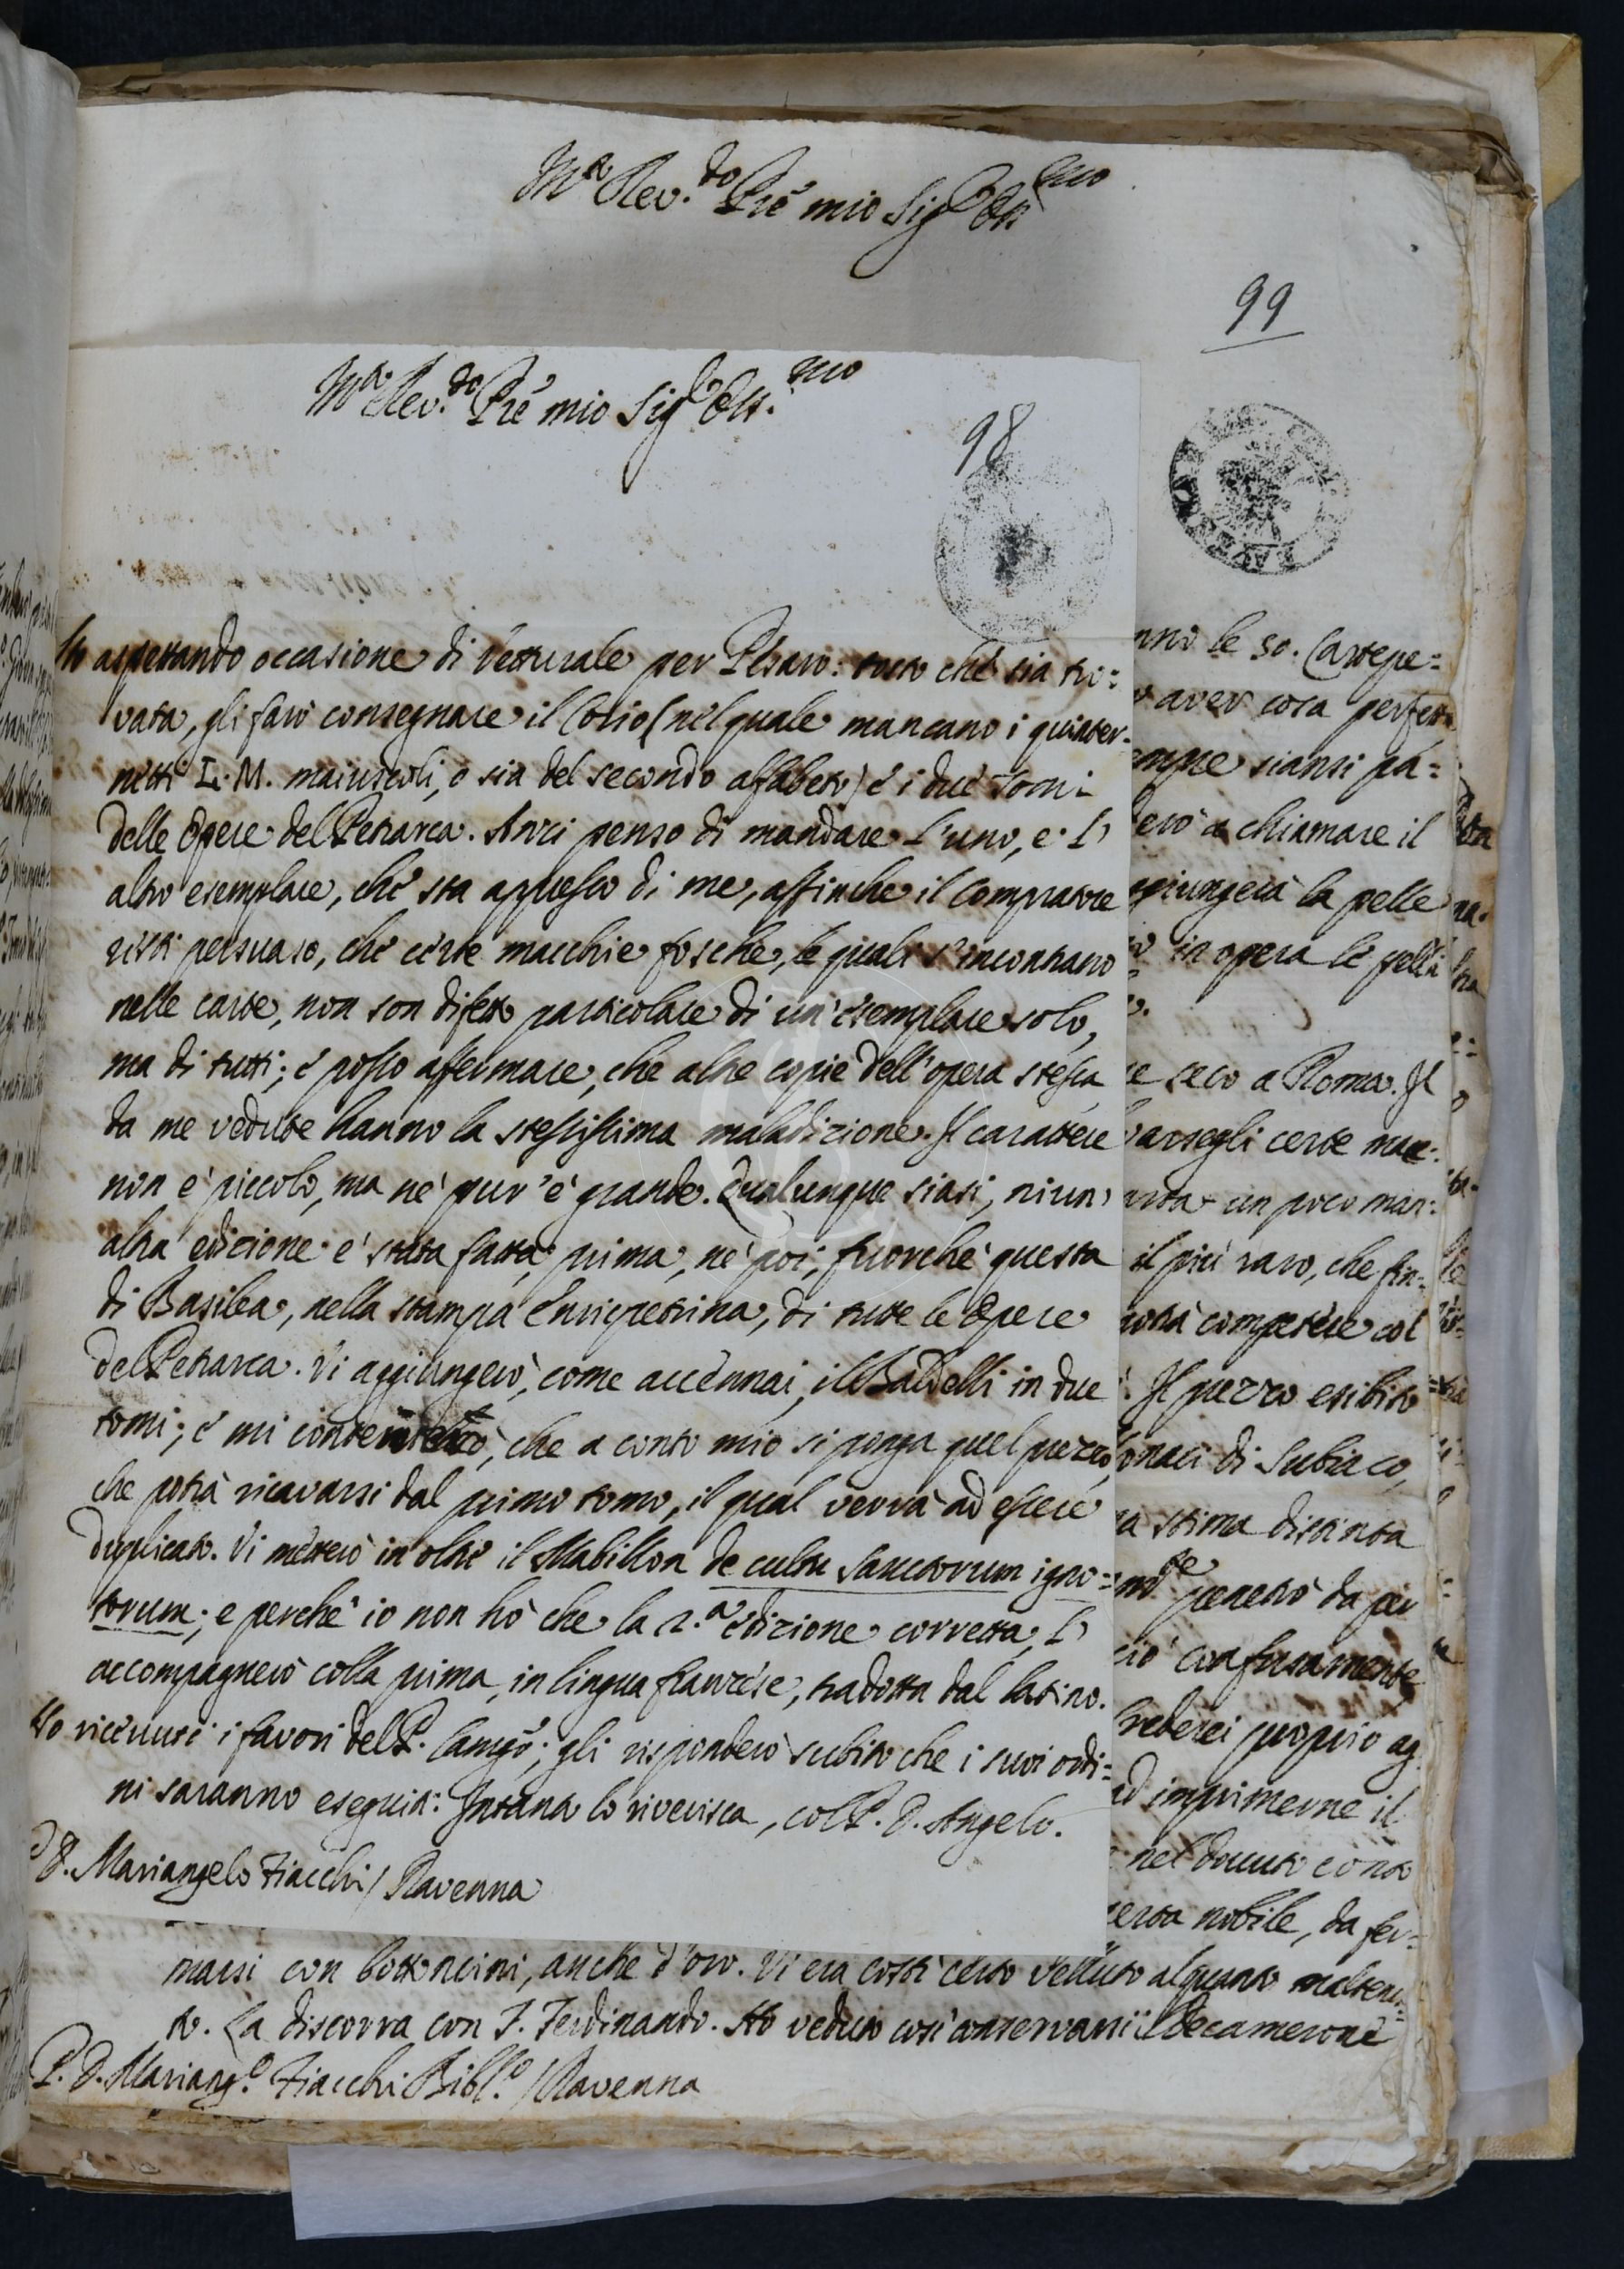 M.to Rev.do Pre mio Sig.r Oss.mo
99
M.to Rev.do Pre mio Sig.r Oss.mo
98
Sto aspettando occasione di Vetturale per Pesaro: tosto che sia tro=
vata, gli farò consegnare il Corio (nel quale mancano i quinter-
netti L. M. maiuscoli, o sia del secondo alfabeto) e i due Tomi
delle Opere del Petrarca. Anzi penso di mandare l'uno, e l'
altro esemplare, che sta appresso di me, affinche il Compratore
resti persuaso, che certe macchie fosche, le quali s'incontrano
nelle carte, non son difetto particolare di un'esemplare solo,
ma di tutti; e posso affermare, che altre copie dell'opera stessa
da me vedute hanno la stessissima maladizione. Il carattere
non è piccolo, ma nè pur'è grande. Qualunque siasi, niun'
altra edizione è stata fatta, prima, nè poi, fuorchè questa
di Basilea, nella stampa Enricpetrina, di tutte le Opere
del Petrarca. Vi aggiungerò, come accennai, il Baldelli in due
tomi; e mi contenterò, che a conto mio si ponga quel prezzo,
che potrà ricavarsi dal primo tomo, il qual verrà ad essere
duplicato. Vi metterò in oltre il Mabillon de cultu Sanctorum igno=
torum; e perchè io non hò che la 2.a edizione corretta, l'
accompagnerò colla prima, in lingua franzese, tradotta dal latino.
Ho ricevuti i favori del P. ; gli risponderò subito che i suoi ordi=
ni saranno eseguiti: Intanto lo riverisca, col P. D. Angelo.
D. Mariangelo Fiacchi / Ravenna
nno le 30. Cartepe=
aver cosa perfetta
empre siansi pa=
erò a chiamare il
ggiungerà la pelle
in opera le pelli
e seco a Roma. Il
arsegli certe mac=
arta un poco man=
il più raro, che fin=
potrà competere col
Il prezzo esibito
onaci di Subiaco,
a stima distinta
penetrò da per
ciò confusamente
rederei proprio ag
ad imprimerne il
nel dovuto conto
erta nobile, da fer=
marsi con bottoncini, anche d'oro. Vi era costì certo Velluto alquanto maltenu=
to. La discorra con F. Ferdinando. Ho veduto così conservarsi il Decamerone
P. D. Mariang.o Fiacchi Bibl.o / Ravenna